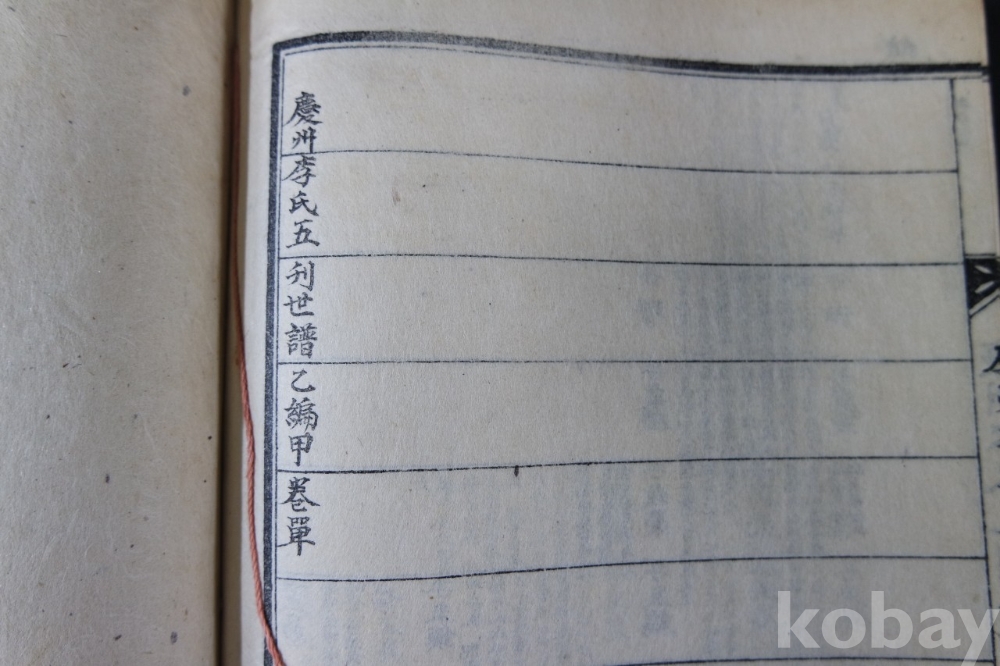 慶州李氏五刋世譜乙編甲卷單
kobay